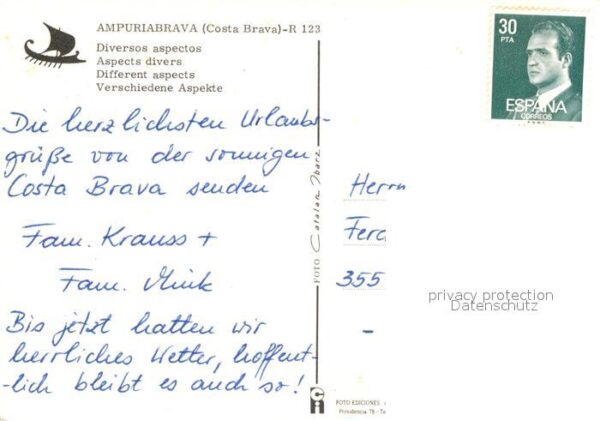 AMPURIABRAVA (Costa Brava)-R 123
Diversos aspectos
Aspects divers
Different aspects
Verschiedene Aspekte
30
PTA
ESPAÑA
CORREOS
Die herzlichsten Urlaubs-
grüße von der sonnigen
Costa Brava senden
Fam. Krauss +
Fam. Mink
Bis jetzt hatten wir
herrliches Wetter, hoffent-
-lich bleibt es auch so!
FOTO Catalan Ibarz
Herrn
Ferd
355
-
privacy protection
Datenschutz
ci
FOTO EDICIONES
Providencia, 78 - Te